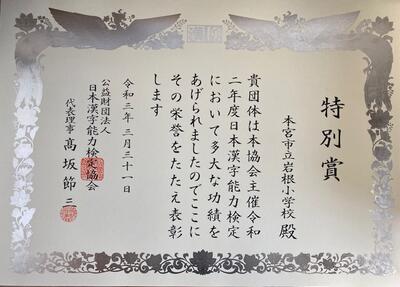 特別賞
本宮市立岩根小学校 殿
貴団体は本協会主催令和
二年度日本漢字能力検定
において多大な功績を
あげられましたのでここに
その栄誉をたたえ表彰
します
令和三年三月三十一日
公益財団法人
日本漢字能力検定協会
代表理事 髙坂節三